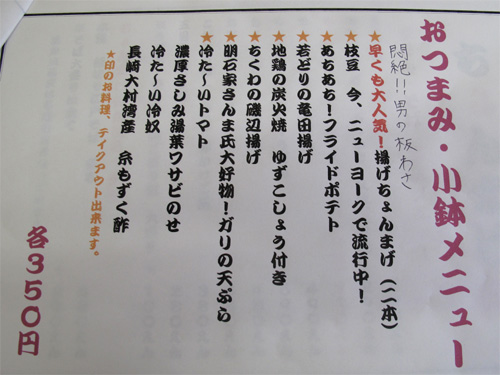 おつまみ・小鉢メニュー
悶絶!!男の板わさ
★早くも大人気!揚げちょんまげ(二本)
★枝豆 今、ニューヨークで流行中!
★あちあち!フライドポテト
★若どりの竜田揚げ
★地鶏の炭火焼 ゆずこしょう付き
★ちくわの磯辺揚げ
★明石家さんま氏大好物!ガリの天ぷら
★冷た〜いトマト
濃厚さしみ湯葉ワサビのせ
冷た〜い冷奴
長崎大村湾産 糸もずく酢
★印のお料理、テイクアウト出来ます。
各350円